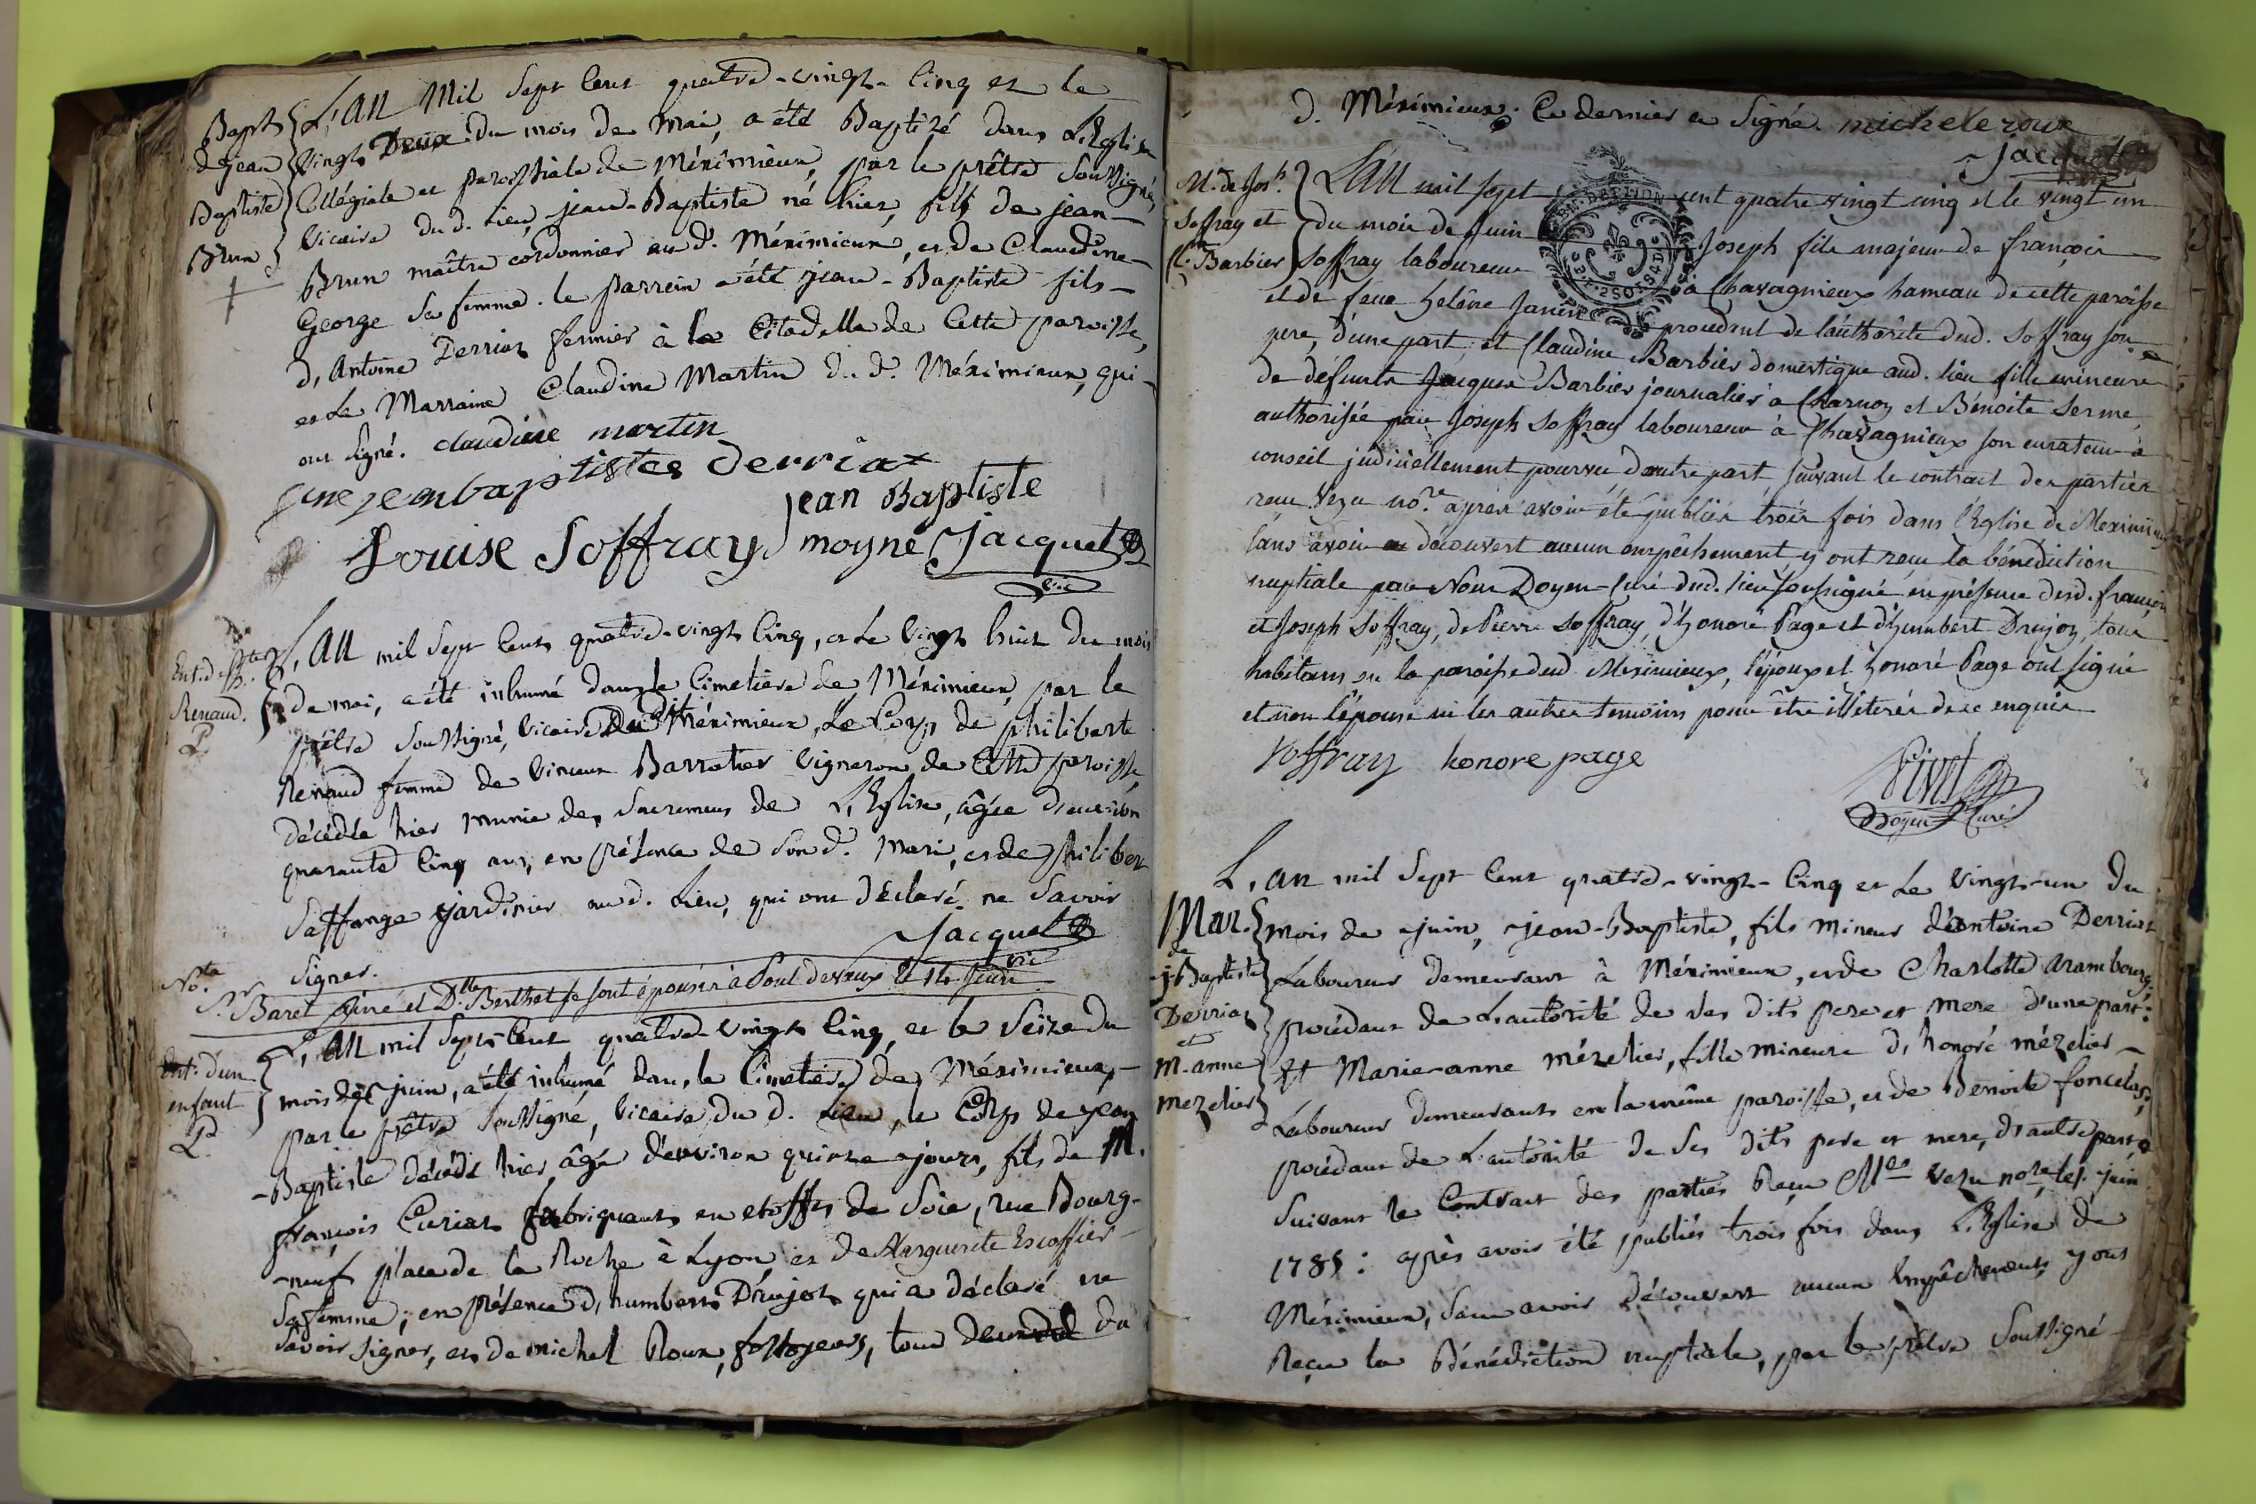 Bapt.
de jean
Baptiste
Brun
L'an mil sept cent quatre-vingt-cinq et le
vingt Deux du mois de mai, a été Baptisé dans L'Eglise
Collégiale et paroissiale de Méximieux, par le prêtre soussigné,
vicaire du d. lieu, jean-Baptiste né hier, fils de jean-
Brun maître cordonnier au d. Méximieux, et de Claudine-
George sa femme. le parrein a été jean-Baptiste fils-
d'Antoine Derriaz fermier à la Citadelle de Cette paroisse,
et la Marraine Claudine Martin du d. Méximieux, qui-
ont signé. claudine martin
jenbaptistes derriax
jean Baptiste
Louise Soffray moyne Jacquet
vic
Ent. d. Ph.te
Renaud.
L'an mil sept cent quatre-vingt cinq, et le vingt huit du mois
de mai, a été inhumé dans le Cimetiere de Méximieux, par le
prêtre soussigné, vicaire Du d. Méximieux, Le Corps de philiberte
Renaud femme de vincent Barratier vigneron de Cette paroisse,
décédée hier munie des Sacremens de L'Eglise, âgée d'environ
quarante cinq ans, en présence de son d. mari, et de philibert
Saffange jardinier au d. Lieu, qui ont déclaré ne savoir
signer.
Jacquet
vic
No.ta
S.r Baret ainé et D.lle Berthet se sont épousés à Pont de vaux le 14 juin
Ent. d'un
enfant
L'an mil sept-cent quatre-vingt cinq, et le seize du
mois de juin, a été inhumé dans le Cimetiere de Méximieux-
par le prêtre soussigné, vicaire du d. Lieu, le Corps de jean
-Baptiste décédé hier, âgé d'environ quinze jours, fils de M.
françois Curiat fabriquant en etoffes de Soie, rue Bourg-
-neuf place de la Roche à Lyon, et de Marguerite Escoffier-
sa femme; en présence d'humbert Drujon qui a déclaré ne
savoir signer, et de michel Roux, fossoyeurs, tous deux du
d. Méximieux. Ce dernier a signé. michele roux
Jacquet
M. de Jos.h
Soffray et
Cl. Barbier
L'an mil sept cent quatre vingt cinq et le vingt un
du mois de Juin Joseph fils majeur de françois
Soffray laboureur à Chavagnieux hameau de cette paroisse
et de feue heléne Janin procedant de l'authorité dud. Soffray son
pere, d'une part; et Claudine Barbier domestique aud. lieu fille mineure
de défunts Jacques Barbier journalier à Charnoz et Bénoite Serme,
authorisée par Joseph Soffray laboureur à Chavagnieux son curateur à
conseil judiciellement pourvu d'autre part suivant le contract des parties
recu Vezu no.re après avoir été publiés trois fois dans l'Eglise de Meximieux
sans avoir decouvert aucun empêchement y ont recu la bénediction
nuptiale par Nous Doyen-Curé dud. lieu soussigné en présence desd. françois
et Joseph Soffray, de Pierre Soffray, d'honoré Page et d'humbert Drujon, tous
habitans en la paroisse dud. Meximieux, l'époux et honoré Page ont signé
et non l'épouse ni les autres temoins pour être illiterés de ce enquis
Soffray honore page
Doyen Curé
Mar.
de
j-Baptiste
Derriaz
et
m-anne
mezelier
L'an mil sept cent quatre-vingt-cinq et le vingt-un du
mois de juin, jean-Baptiste, fils mineur d'antoine Derriaz
Laboureur demeurant à Méximieux, et de Charlotte arambourg,
procédant de L'autorité de ses dits pere et mere d'une part:
Et Marie-anne mézelier, fille mineure d'honoré mézelier-
Laboureur demeurant en la même paroisse, et de Benoite foncelas,
procédant de L'autorité de ses dits pere et mere, d'autre part,
suivant le Contrat des parties Reçu M.e vezu no.re les. juin
1785: après avoir été publiés trois fois dans L'Eglise de
Méximieux, sans avoir découvert aucun Empêchement y ont
Reçu la Bénédiction nuptiale, par le prêtre soussigné